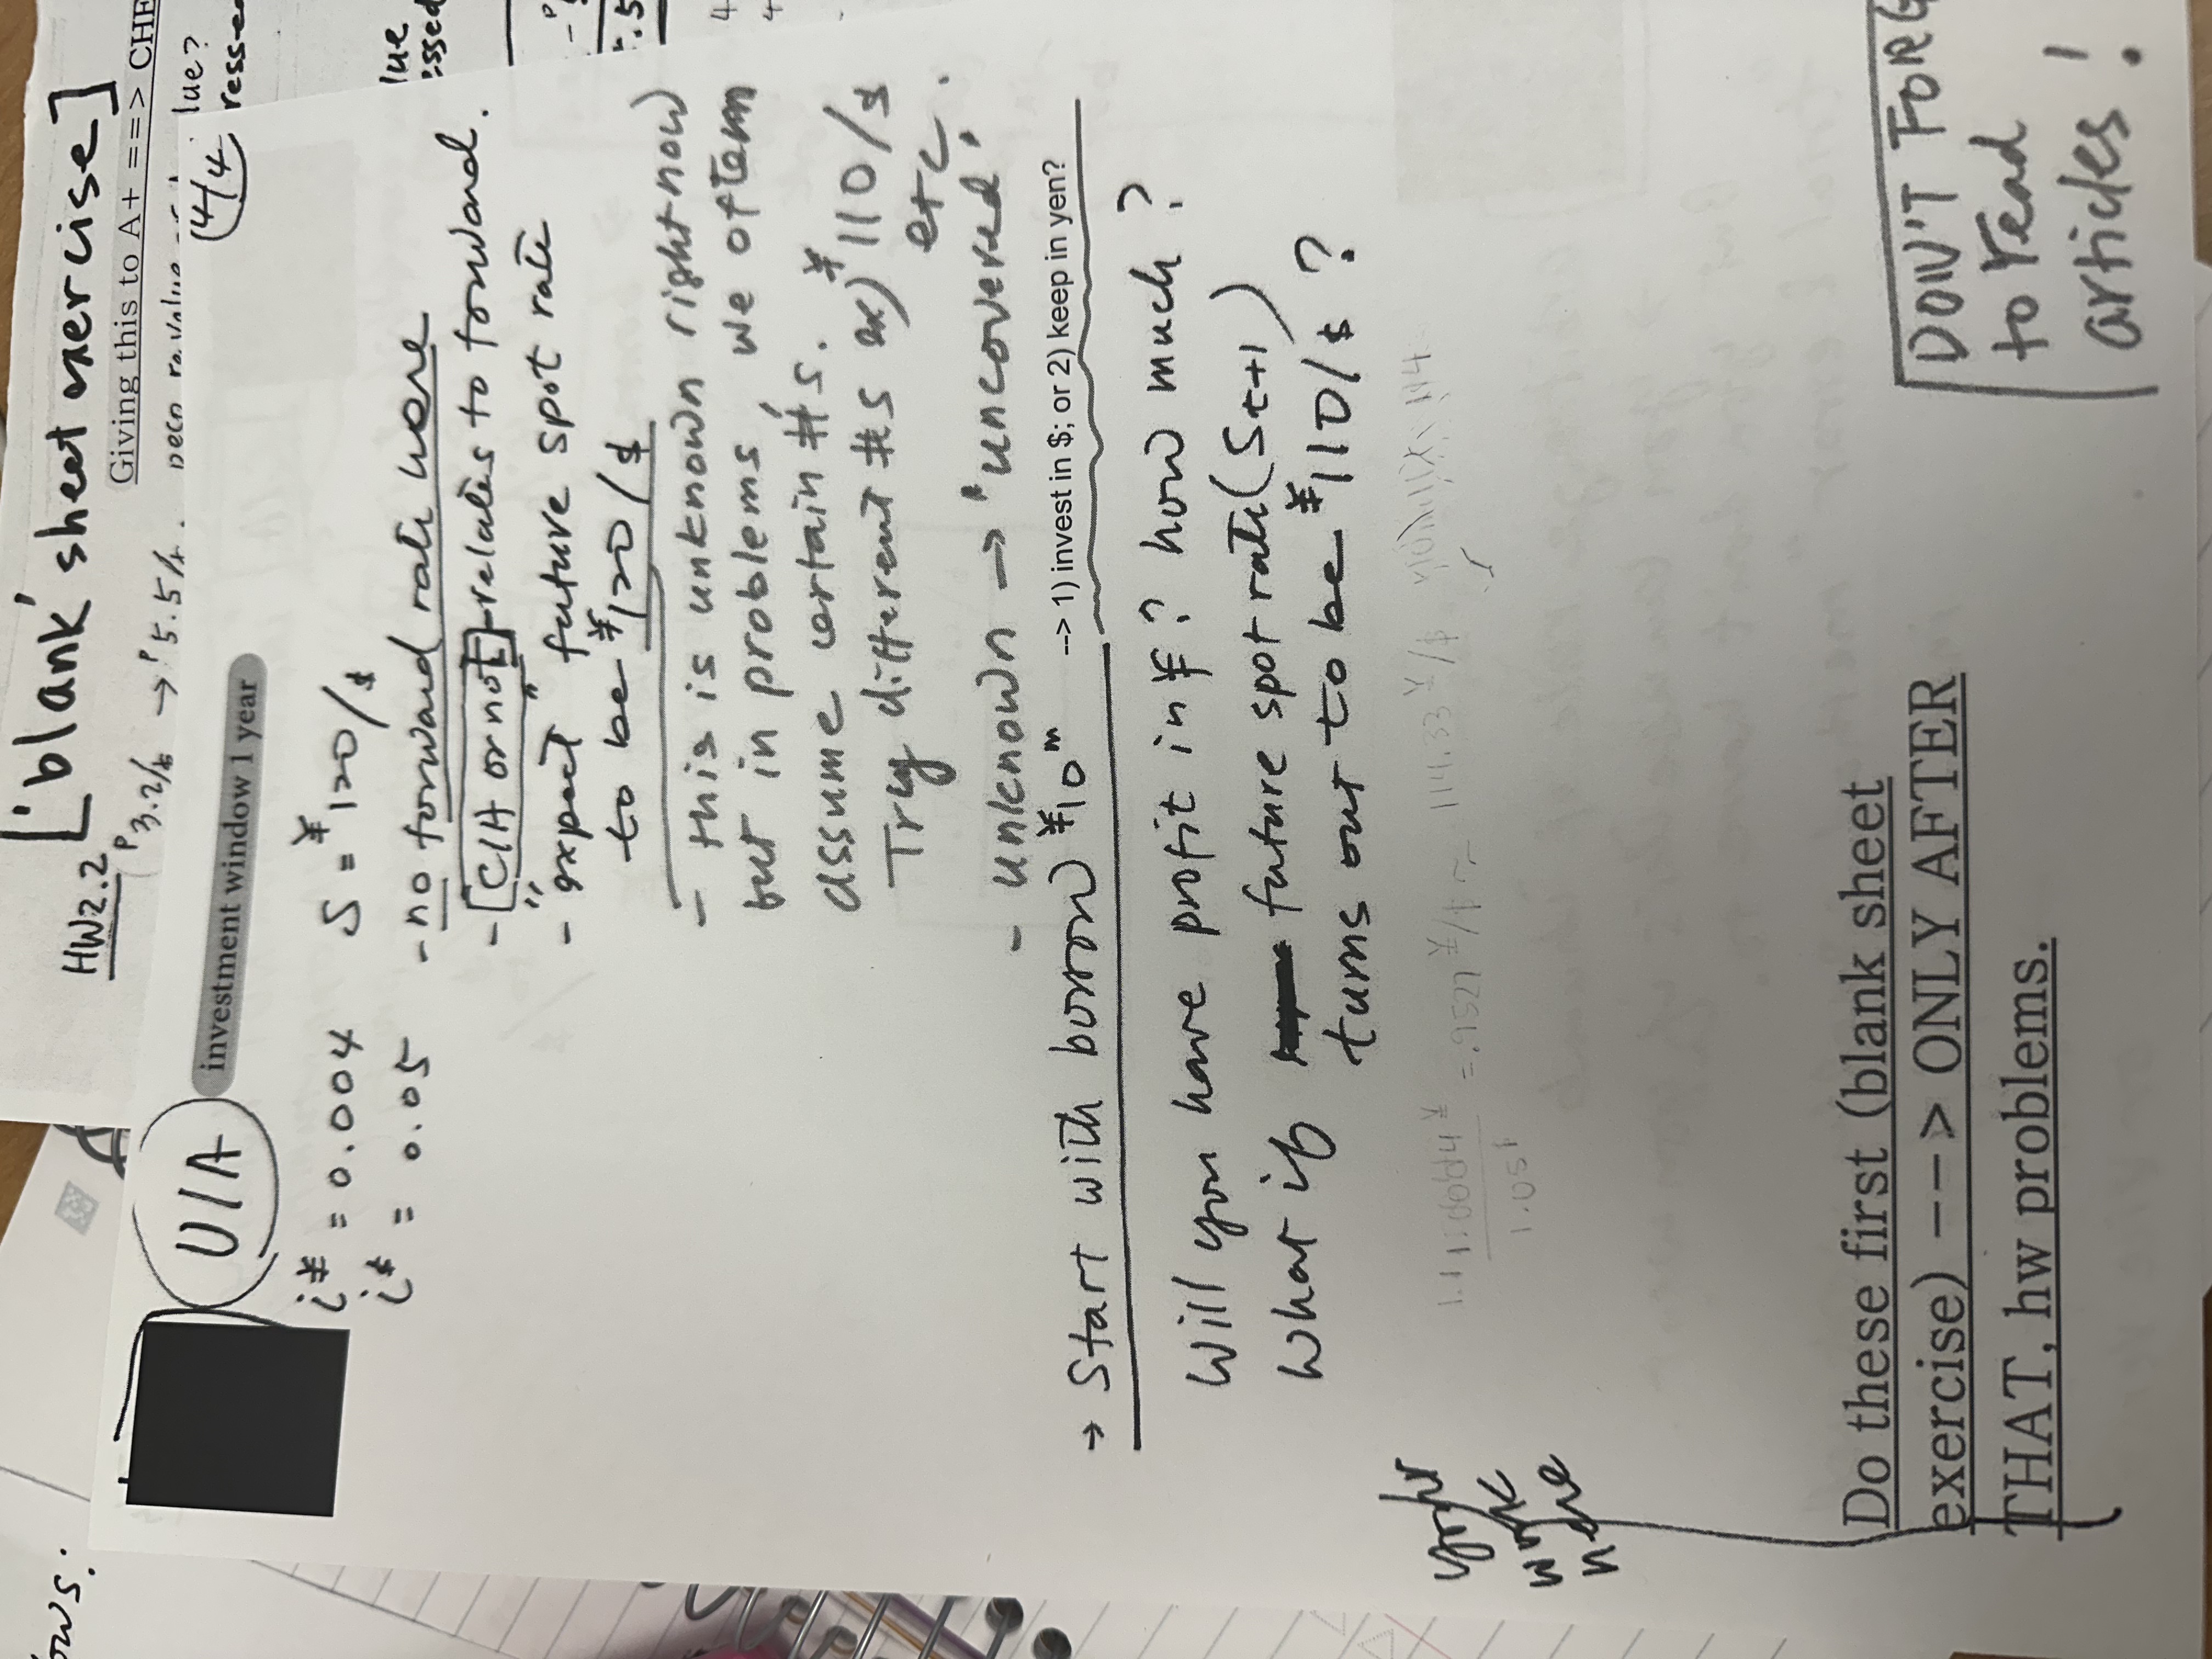 ['blank' sheet exercise]
HW2.2
Giving this to A+ ==> CHE
3.2% → 5.5%.
lue?
ress-e
lue
essed
(4/4
UIA
investment window 1 year
i¥ = 0.004 S = ¥120/$
i$ = 0.05
- no forward rate here
- [CIA or not] relates to forward.
- "expect" future spot rate
to be ¥120/$
- this is unknown right now
but in problems we often
assume certain #'s.
Try different #s ex) ¥110/$
etc.
- unknown → "uncovered.
→ Start with borrow ¥10m --> 1) invest in $; or 2) keep in yen?
Will you have profit in ¥? how much?
What if future spot rate (St+1)
turns out to be ¥110/$?
= .9527 ¥/ 114.33 ¥/
1.051
your
work
here
Do these first (blank sheet
exercise) --> ONLY AFTER
THAT, hw problems.
DON'T FORG
to read
articles!
ows.